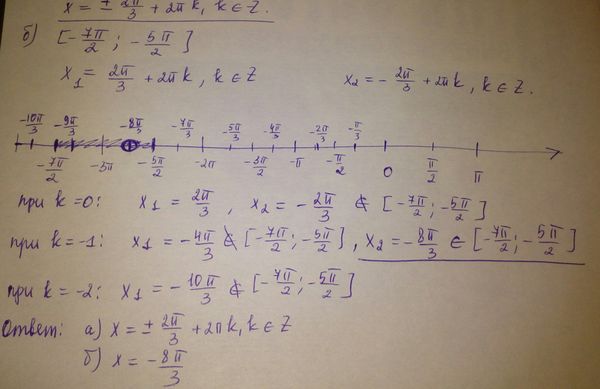 x = ± 2π/3 + 2πk, k ∈ Z.
б) [-7π/2; -5π/2]
x₁ = 2π/3 + 2πk, k ∈ Z x₂ = - 2π/3 + 2πk, k ∈ Z.
-10π/3 -9π/3 -8π/3 -7π/3 -5π/3 -4π/3 -2π/3 -π/3
-7π/2 -3π -5π/2 -2π -3π/2 -π -π/2 0 π/2 π
при k=0: x₁ = 2π/3, x₂ = - 2π/3 ∉ [-7π/2; -5π/2]
при k=-1: x₁ = - 4π/3 ∉ [-7π/2; -5π/2], x₂ = - 8π/3 ∈ [-7π/2; -5π/2]
при k=-2: x₁ = - 10π/3 ∉ [-7π/2; -5π/2]
Ответ: а) x = ± 2π/3 + 2πk, k ∈ Z
б) x = -8π/3